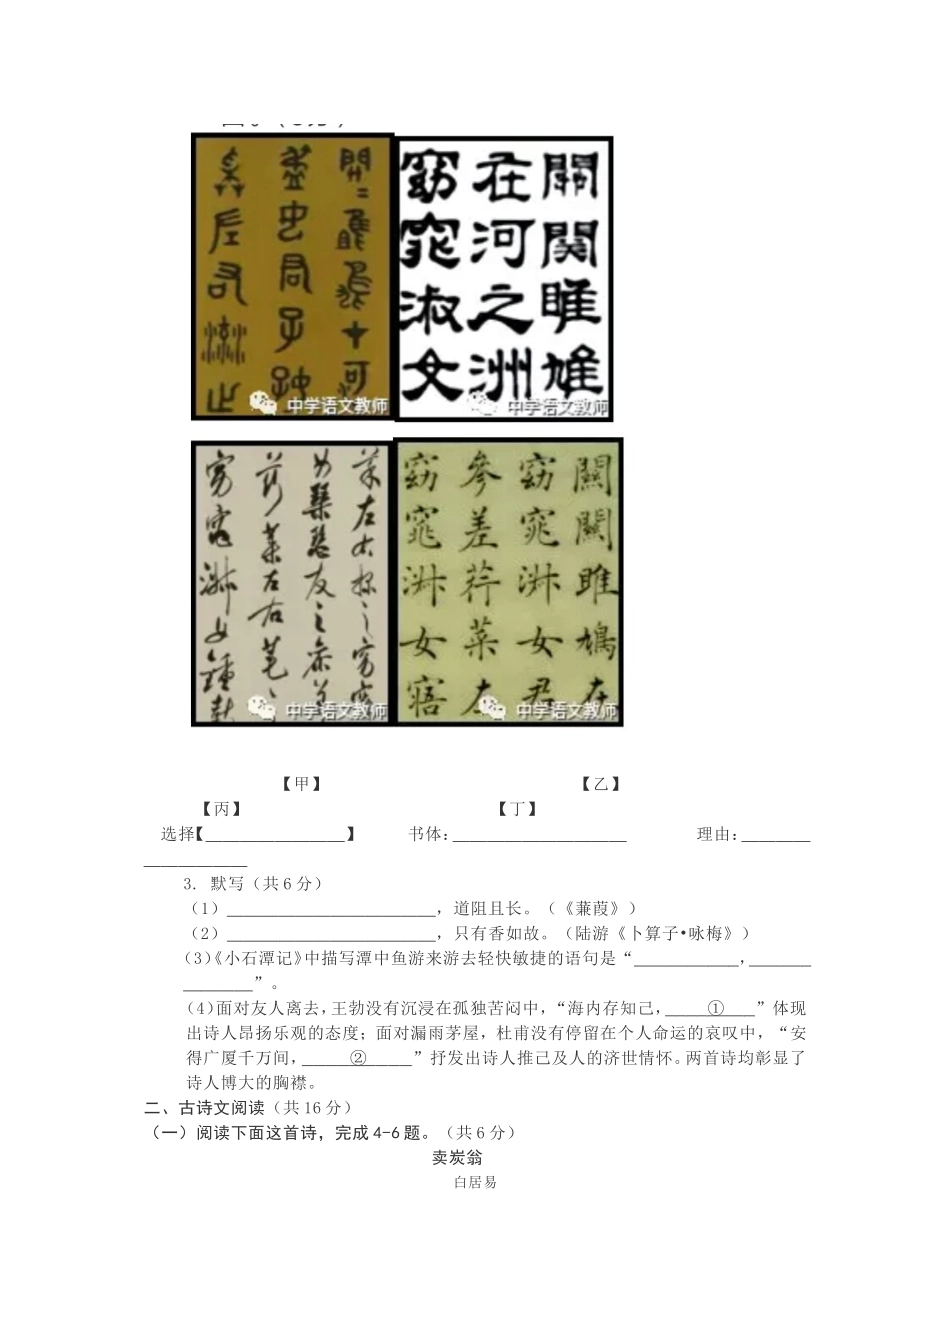 關關雎雄
在河之洲
窈窕淑女
中学语文教师
中学语文教师
關關雎鳩在
窈窕淑女君
參差荇菜左
窈窕淑女寤
中学语文教师
中学语文教师
【甲】 【乙】
【丙】 【丁】
选择【________________】 书体：____________________ 理由：________
____________
3. 默写（共 6 分）
（1）________________________，道阻且长。（《蒹葭》）
（2）________________________，只有香如故。（陆游《卜算子•咏梅》）
（3）《小石潭记》中描写潭中鱼游来游去轻快敏捷的语句是“____________，_______
________”。
（4）面对友人离去，王勃没有沉浸在孤独苦闷中，“海内存知己，_____①____”体现
出诗人昂扬乐观的态度；面对漏雨茅屋，杜甫没有停留在个人命运的哀叹中，“安
得广厦千万间，______②_____”抒发出诗人推己及人的济世情怀。两首诗均彰显了
诗人博大的胸襟。
二、古诗文阅读（共 16 分）
（一）阅读下面这首诗，完成 4-6 题。（共 6 分）
卖炭翁
白居易